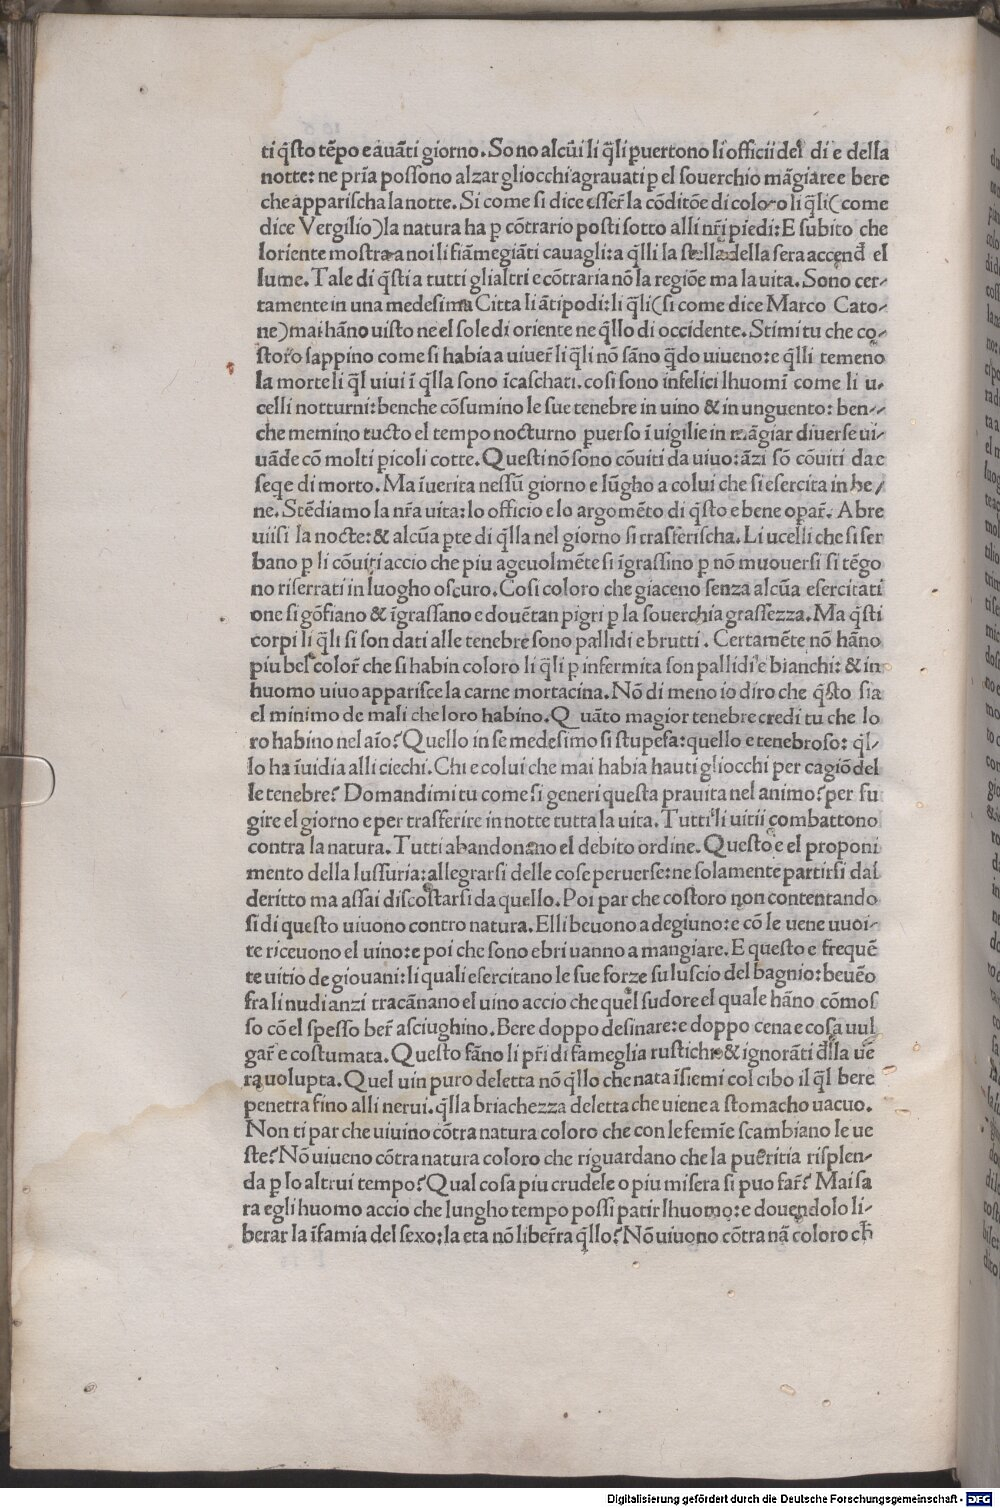 ti q̄sto tēpo e auāti giorno. Sono alcūi li q̄li ꝑuertono li officii del di e della
notte: ne pria possono alzar gliocchi agrauati ꝑ el souerchio māgiare e bere
che apparischa la notte. Si come si dice esser̄ la cōditōe di coloro li q̄li (come
dice Vergilio) la natura ha ꝑ cōtrario posti sotto alli nr̄i piedi: E subito che
loriente mostra a noi li fiāmegiāti cauagli: a q̄lli la stella della sera accend̄ el
lume. Tale di q̄sti a tutti glialtri e cōtraria nō la regiōe ma la uita. Sono cer-
tamente in una medesima Citta li ātipodi: li q̄li (si come dice Marco Cato-
ne) mai hāno uisto ne el sole di oriente ne q̄llo di occidente. Stimi tu che co-
storo sappino come si habia a uiuer̄ li q̄li nō sāno q̄do uiueno: e q̄lli temeno
la morte li q̄l uiui ī q̄lla sono īcaschati. cosi sono infelici lhuomī come li u-
celli notturni: benche cōsumino le sue tenebre in uino & in unguento: ben-
che menino tucto el tempo nocturno ꝑuerso ī uigilie in māgiar diuerse ui-
uāde cō molti ꝑicoli cotte. Questi nō sono cōuiti da uiuo: āzi sō cōuiti da e
seqe di morto. Ma īuerita nessū giorno e lūgho a colui che si esercita in be-
ne. Stēdiamo la nr̄a uita: lo officio e lo argomēto di q̄sto e bene opar̄. Abre
uiisi la nocte: & alcūa ꝑte di q̄lla nel giorno si trasferischa. Li ucelli che si ser
bano ꝑ li cōuiti accio che piu ageuolmēte si īgrassino ꝑ nō muouersi si tēgo
no riserrati in luogho oscuro. Cosi coloro che giaceno senza alcūa esercitati
one si gōfiano & īgrassano e douētan pigri ꝑ la souerchia grassezza. Ma q̄sti
corpi li q̄li si son dati alle tenebre sono pallidi e brutti. Certamēte nō hāno
piu bel color̄ che si habin coloro li q̄li ꝑ infermita son pallidi e bianchi: & in
huomo uiuo apparisce la carne mortacina. Nō di meno io diro che q̄sto sia
el minimo de mali che loro habino. Q uāto magior tenebre credi tu che lo
ro habino nel aīo? Quello in se medesimo si stupefa: quello e tenebroso: q̄l-
lo ha īuidia alli ciechi. Chi e colui che mai habia hauti gliocchi per cagiō del
le tenebre? Domandimi tu come si generi questa prauita nel animo? per fu
gire el giorno e per trasferire in notte tutta la uita. Tutti li uitii combattono
contra la natura. Tutti abandonano el debito ordine. Questo e el proponi
mento della lussuria: allegrarsi delle cose peruerse: ne solamente partirsi dal
deritto ma assai discostarsi da quello. Poi par che costoro non contentando
si di questo uiuono contro natura. Elli beuono a degiuno: e cō le uene uuoi-
te riceuono el uino: e poi che sono ebri uanno a mangiare. E questo e frequē
te uitio de giouani: li quali esercitano le sue forze su luscio del bagnio: beuēo
fra li nudi anzi tracānano el uino accio che quel sudore el quale hāno cōmos
so cō el spesso ber̄ asciughino. Bere doppo desinare: e doppo cena e cosa uul
gar̄ e costumata. Questo fāno li pr̄i di fameglia rustichi & ignorāti d̄lla ue̅
ra uolupta. Quel uin puro deletta nō q̄llo che nata īsiemi col cibo il q̄l bere
penetra fino alli nerui. q̄lla briachezza deletta che uiene a stomacho uacuo.
Non ti par che uiuino cōtra natura coloro che con le femīe scambiano le ue
ste? Nō uiueno cōtra natura coloro che riguardano che la pueritia risplen-
da ꝑ lo altrui tempo? Qual cosa piu crudele o piu misera si puo far̄? Mai sa
ra egli huomo accio che lungho tempo possi patir lhuomo: e douendolo li-
berar la īfamia del sexo: la eta nō liber̄ra q̄llo? Nō uiuono cōtra nā coloro ch̄
Digitalisierung gefördert durch die Deutsche Forschungsgemeinschaft - DFG